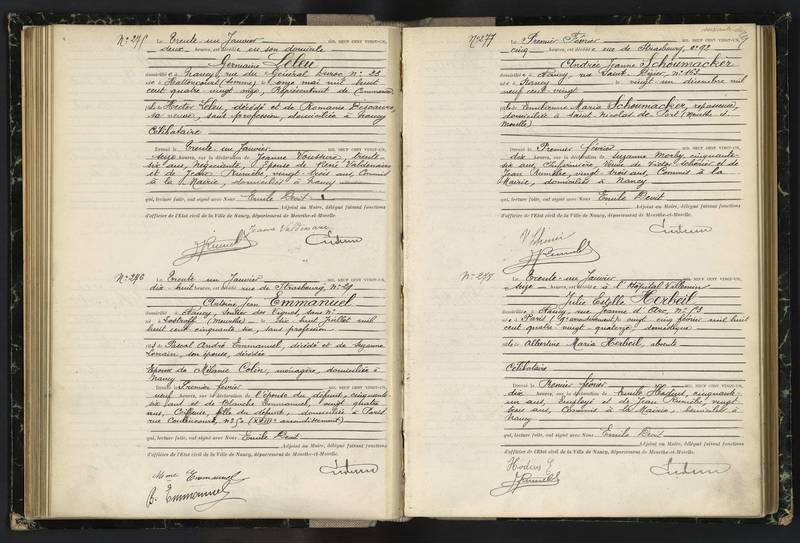 N° 245 Le Trente un Janvier MIL NEUF CENT VINGT-UN,
deux heures, est décédé e en son domicile
Germaine Leleu
domicilié e à Nancy, rue du Général Duroc, n° 22
née à (Somme), le onze mai mil huit
cent quatre vingt onze, Représentant de Commerce
de Hector Leleu, décédé et de Romanie
sa veuve, sans profession, domiciliée à Nancy
Célibataire
Dressé le Trente un Janvier MIL NEUF CENT VINGT-UN,
seize heures, sur la déclaration de Jeanne trente-
six ans, Négociante, épouse de René Valdenaire
et de Jean vingt trois ans, Commis
à la Mairie, domiciliés à Nancy
qui, lecture faite, ont signé avec Nous Emile Devit
Adjoint au Maire, délégué faisant fonctions
d'officier de l'Etat civil de la Ville de Nancy, département de Meurthe-et-Moselle.
Jeanne Valdenaire
N° 246 Le Trente un Janvier MIL NEUF CENT VINGT-UN,
dix huit heures, est décédé rue de Strasbourg, n° 29
Antoine Jean Emmanuel
domicilié à Nancy, sentier des Vignes, sans n°
né à (Meurthe) le dix huit Juillet mil
huit cent cinquante six, sans profession
fils de Pascal André Emmanuel, décédé et de Suzanne
Lorrain, son épouse, décédée
Epoux de Mélanie Colin, ménagère, domiciliée à
Nancy
Dressé le Premier février MIL NEUF CENT VINGT-UN,
neuf heures, sur la déclaration de l'épouse du défunt, cinquante
six ans et de Blanche Emmanuel, vingt quatre
ans, Coiffeuse, fille du défunt, domiciliée à Paris
rue Coulencourt, n° (XVIII° arrondissement)
qui, lecture faite, ont signé avec Nous Emile Devit
Adjoint au Maire, délégué faisant fonctions
d'officier de l'Etat civil de la Ville de Nancy, département de Meurthe-et-Moselle.
Mme Emmanuel
B. Emmanuel
N° 277 Le Premier Février MIL NEUF CENT VINGT-UN,
cinq heures, est décédé e rue de Strasbourg, n° 92
Andrée Jeanne Schoumacker
domicilié e à Nancy, rue Saint Dizier, n° 153
née à Nancy le vingt un décembre mil
neuf cent vingt
fille de Emilienne Maria Schoumacker, repasseuse,
domiciliée à Saint Nicolas de Port (Meurthe et
Moselle)
Dressé le Premier février MIL NEUF CENT VINGT-UN,
dix heures, sur la déclaration de Suzanne cinquante-
six ans, Infirmière, Veuve de Victor et de
Jean vingt trois ans, Commis à la
Mairie, domiciliés à Nancy
qui, lecture faite, ont signé avec Nous Emile Devit
Adjoint au Maire, délégué faisant fonctions
d'officier de l'Etat civil de la Ville de Nancy, département de Meurthe-et-Moselle.
Le Trente un Janvier MIL NEUF CENT VINGT-UN,
seize heures, est décédé e à l'Hôpital Villemin
Julie Estelle Herbeil
domicilié e à Nancy, rue Jeanne d'Arc, n° 153
née à Paris vingt cinq février mil huit
cent quatre vingt quatorze, domestique
fille de Albertine Maria Herbeil, absente
Célibataire
Dressé le Premier février MIL NEUF CENT VINGT-UN,
dix heures, sur la déclaration de Emile Hodeus, cinquante-
un ans, Employé et de Jean vingt
trois ans, Commis à la Mairie, domiciliés à
Nancy
qui, lecture faite, ont signé avec Nous Emile Devit
Adjoint au Maire, délégué faisant fonctions
d'officier de l'Etat civil de la Ville de Nancy, département de Meurthe-et-Moselle.
Hodeus E